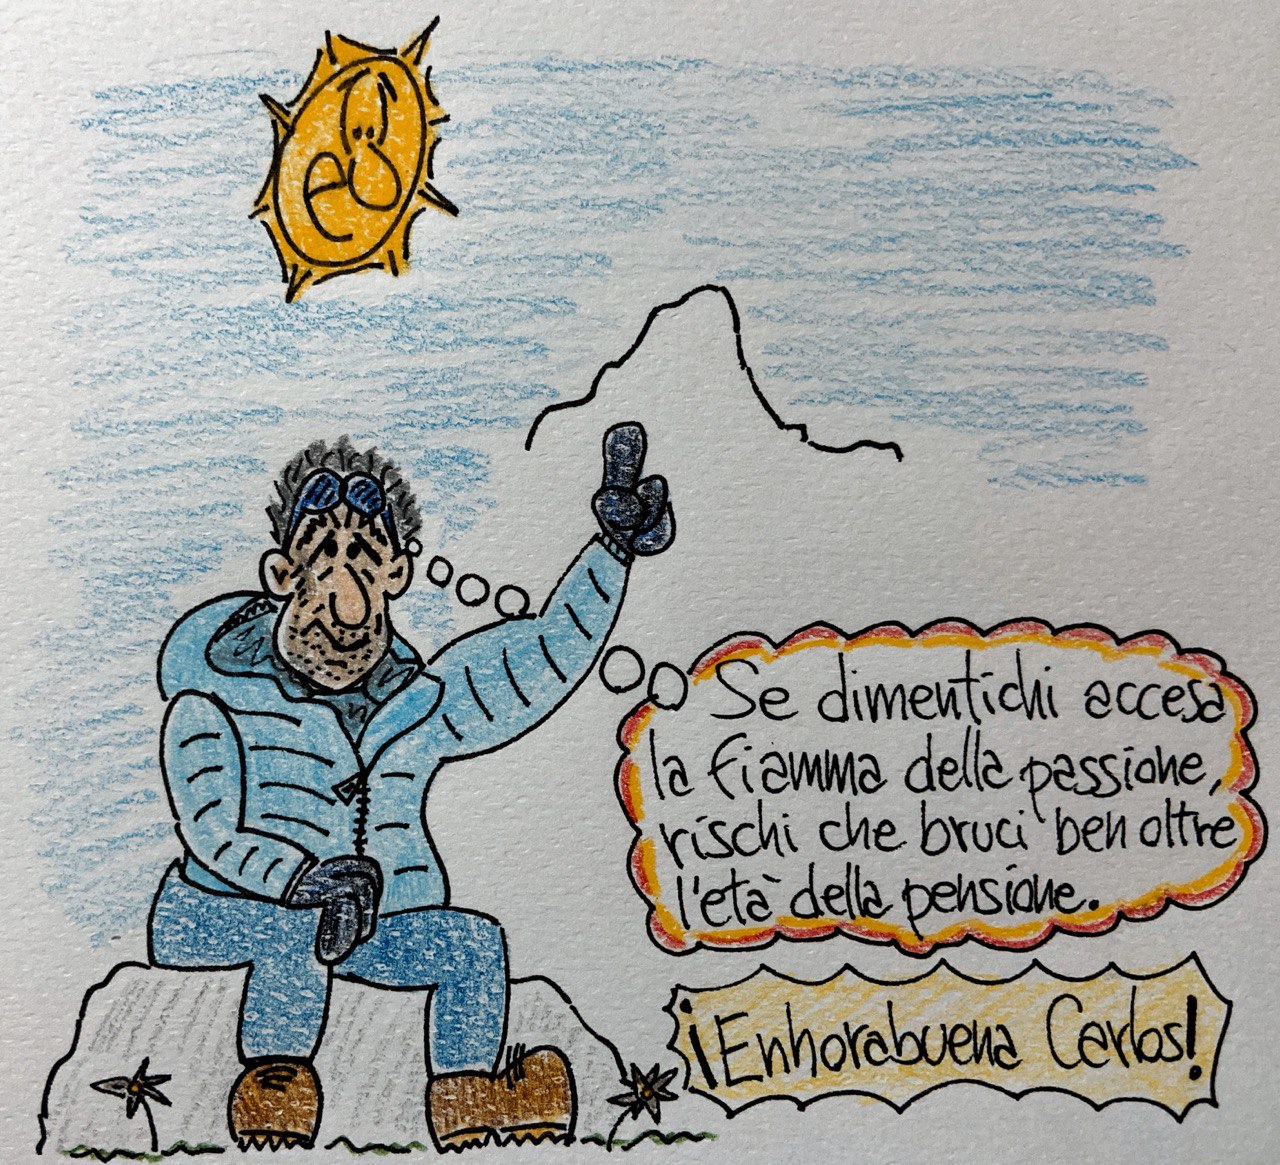 Se dimentichi accesa
la fiamma della passione,
rischi che bruci ben oltre
l'età della pensione.
¡Enhorabuena Carlos!